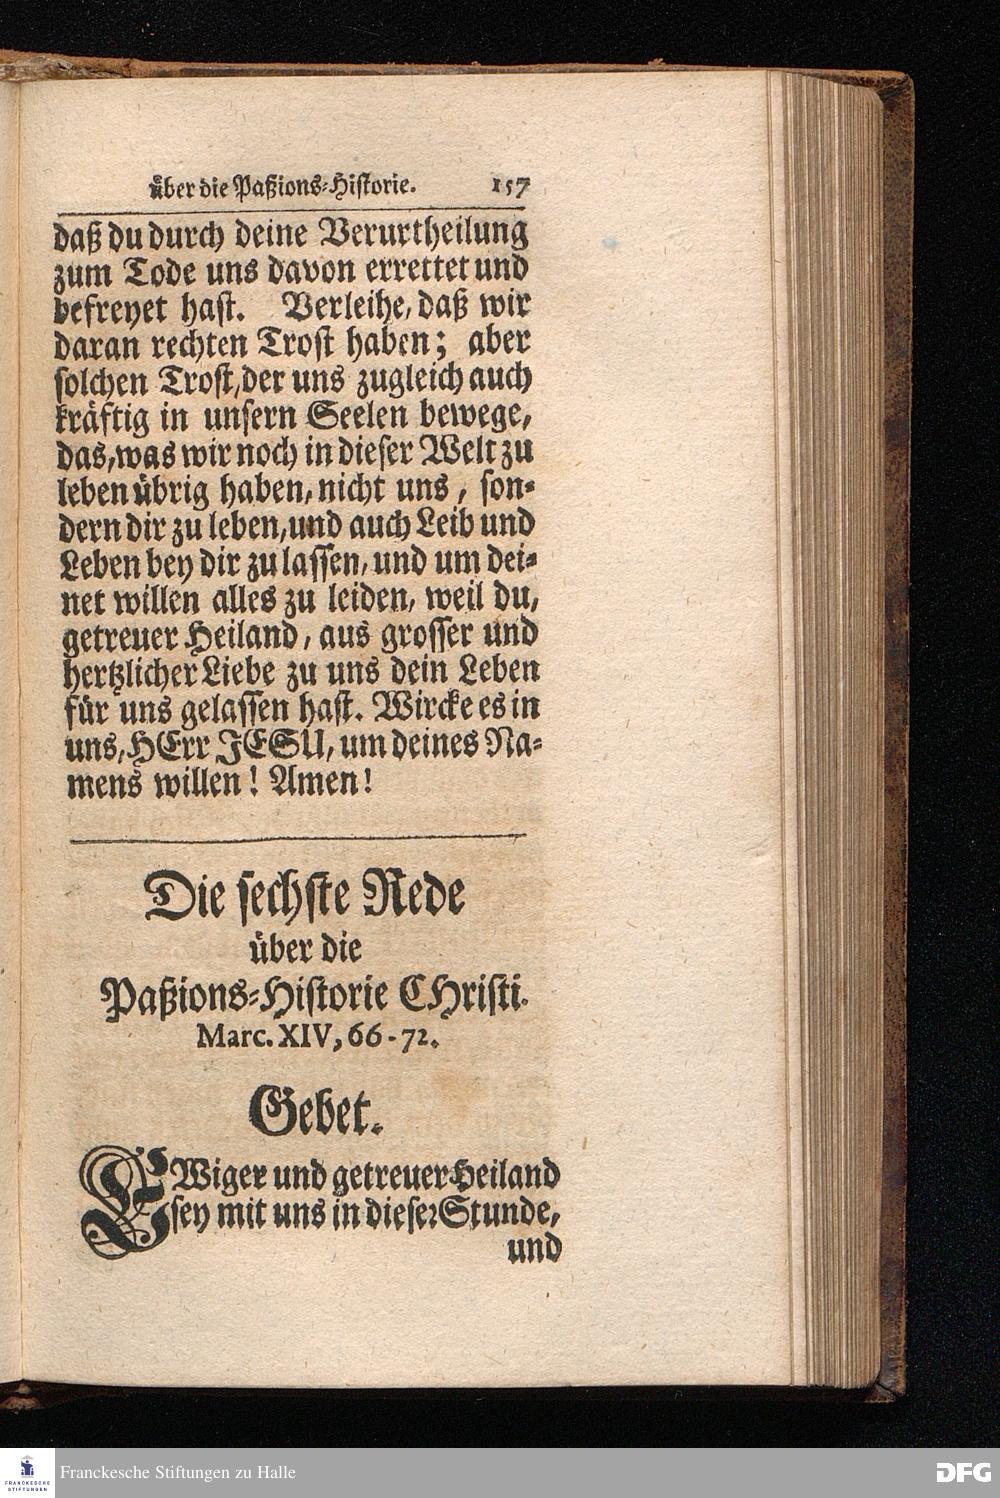 über die Paßions-Historie. 157
daß du durch deine Verurtheilung
zum Tode uns davon errettet und
befreyet hast. Verleihe, daß wir
daran rechten Trost haben; aber
solchen Trost, der uns zugleich auch
kräftig in unsern Seelen bewege,
das, was wir noch in dieser Welt zu
leben übrig haben, nicht uns, son-
dern dir zu leben, und auch Leib und
Leben bey dir zu lassen, und um dei-
net willen alles zu leiden, weil du,
getreuer Heiland, aus grosser und
hertzlicher Liebe zu uns dein Leben
für uns gelassen hast. Wircke es in
uns, HErr JESU, um deines Na-
mens willen! Amen!
Die sechste Rede
über die
Paßions-Historie CHristi.
Marc. XIV, 66-72.
Gebet.
EWiger und getreuer Heiland
sey mit uns in dieser Stunde,
und
FRANCKESCHE
STIFTUNGEN
Franckesche Stiftungen zu Halle
DFG